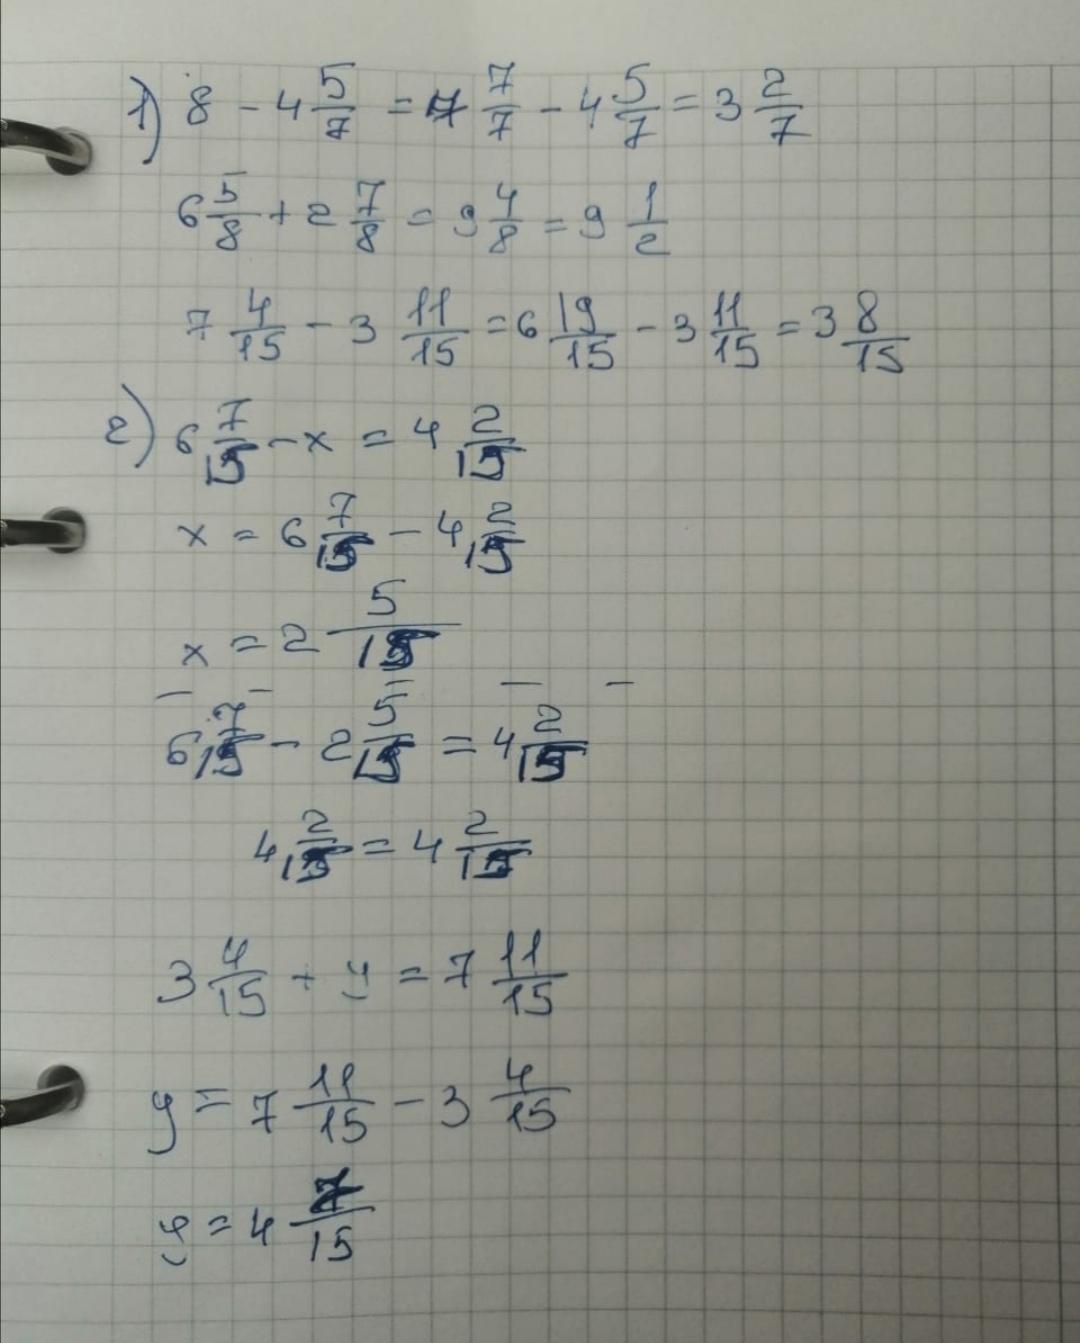 1) 8 - 4 5/7 = 7 7/7 - 4 5/7 = 3 2/7
6 5/8 + 2 7/8 = 9 4/8 = 9 1/2
7 4/15 - 3 11/15 = 6 19/15 - 3 11/15 = 3 8/15
2) 6 7/15 - x = 4 2/15
x = 6 7/15 - 4 2/15
x = 2 5/15
6 7/15 - 2 5/15 = 4 2/15
4 2/15 = 4 2/15
3 4/15 + y = 7 11/15
y = 7 11/15 - 3 4/15
y = 4 7/15